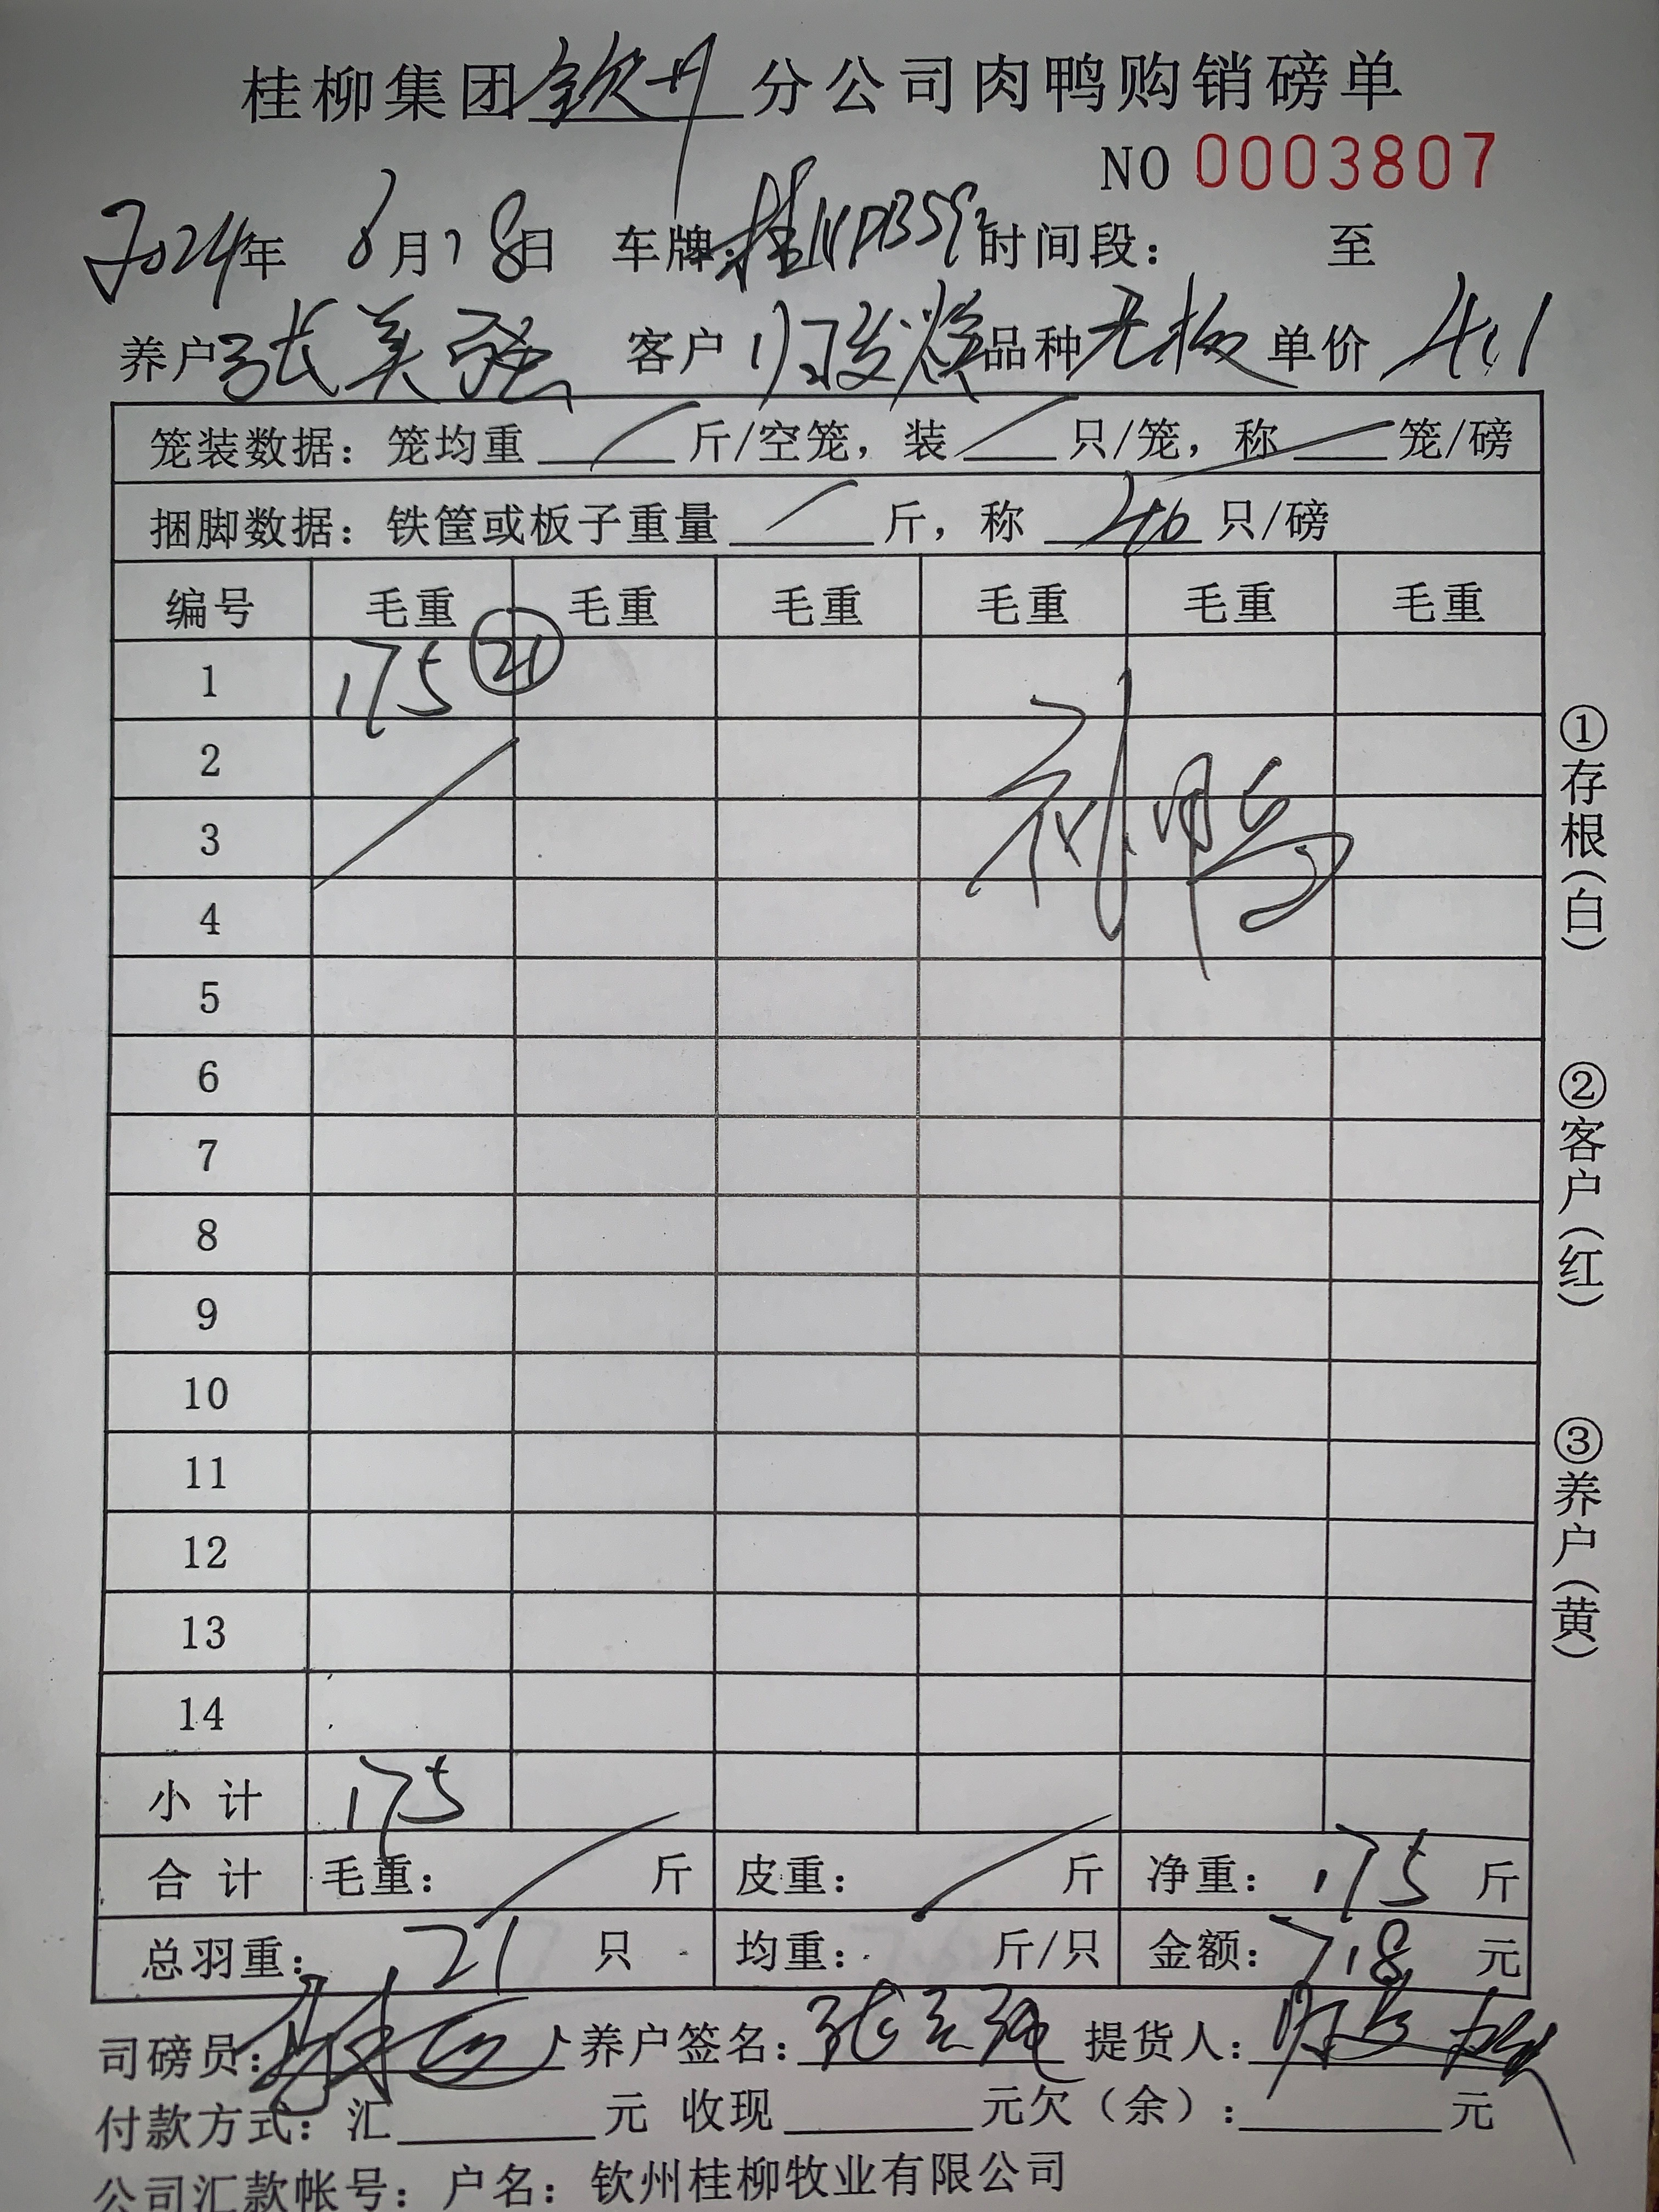 桂柳集团钦州分公司肉鸭购销磅单
NO 0003807
2024年 6月18日 车牌: 时间段: 至
养户张美强 客户归发焕品种老板单价 4.1
笼装数据: 笼均重 / 斤/空笼, 装 / 只/笼, 称 / 笼/磅
捆脚数据: 铁筐或板子重量 / 斤, 称 40 只/磅
编号 毛重 毛重 毛重 毛重 毛重 毛重
1 175 21
2
3 鸭
4
5
6
7
8
9
10
11
12
13
14
小 计 175
合 计 毛重: / 斤 皮重: / 斤 净重: 175 斤
总羽重: 21 只 均重: 斤/只 金额: 718 元
司磅员: 养户签名: 张美强 提货人:
付款方式: 汇 元 收现 元欠(余): 元
公司汇款帐号: 户名: 钦州桂柳牧业有限公司
①存根(白)
②客户(红)
③养户(黄)